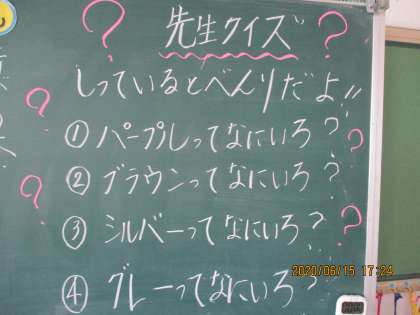 先生クイズ
? ?
しっているとべんりだよ!!
① パープルってなにいろ?
② ブラウンってなにいろ?
③ シルバーってなにいろ?
④ グレーってなにいろ?
2020/06/15 17:24